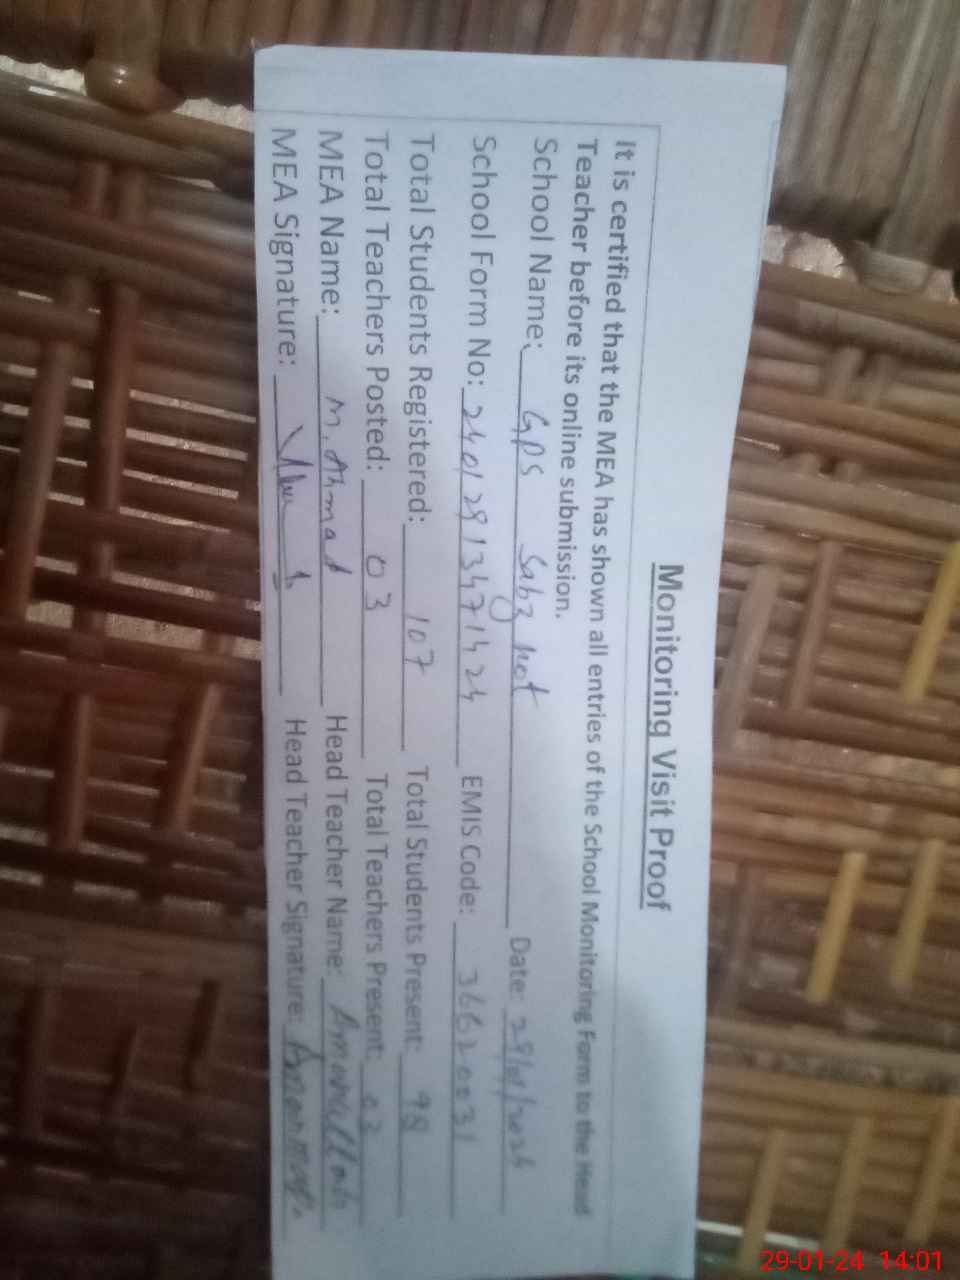 Monitoring Visit Proof
It is certified that the MEA has shown all entries of the School Monitoring Form to the Head
Teacher before its online submission.
School Name: GPS Sabz kot Date: 29/01/2024
School Form No: 24012913471424 EMIS Code: 36620031
Total Students Registered: 107 Total Students Present: 98
Total Teachers Posted: 03 Total Teachers Present: 03
MEA Name: M. Ahmad Head Teacher Name: Amanullah
MEA Signature: Head Teacher Signature:
29-01-24 14:01